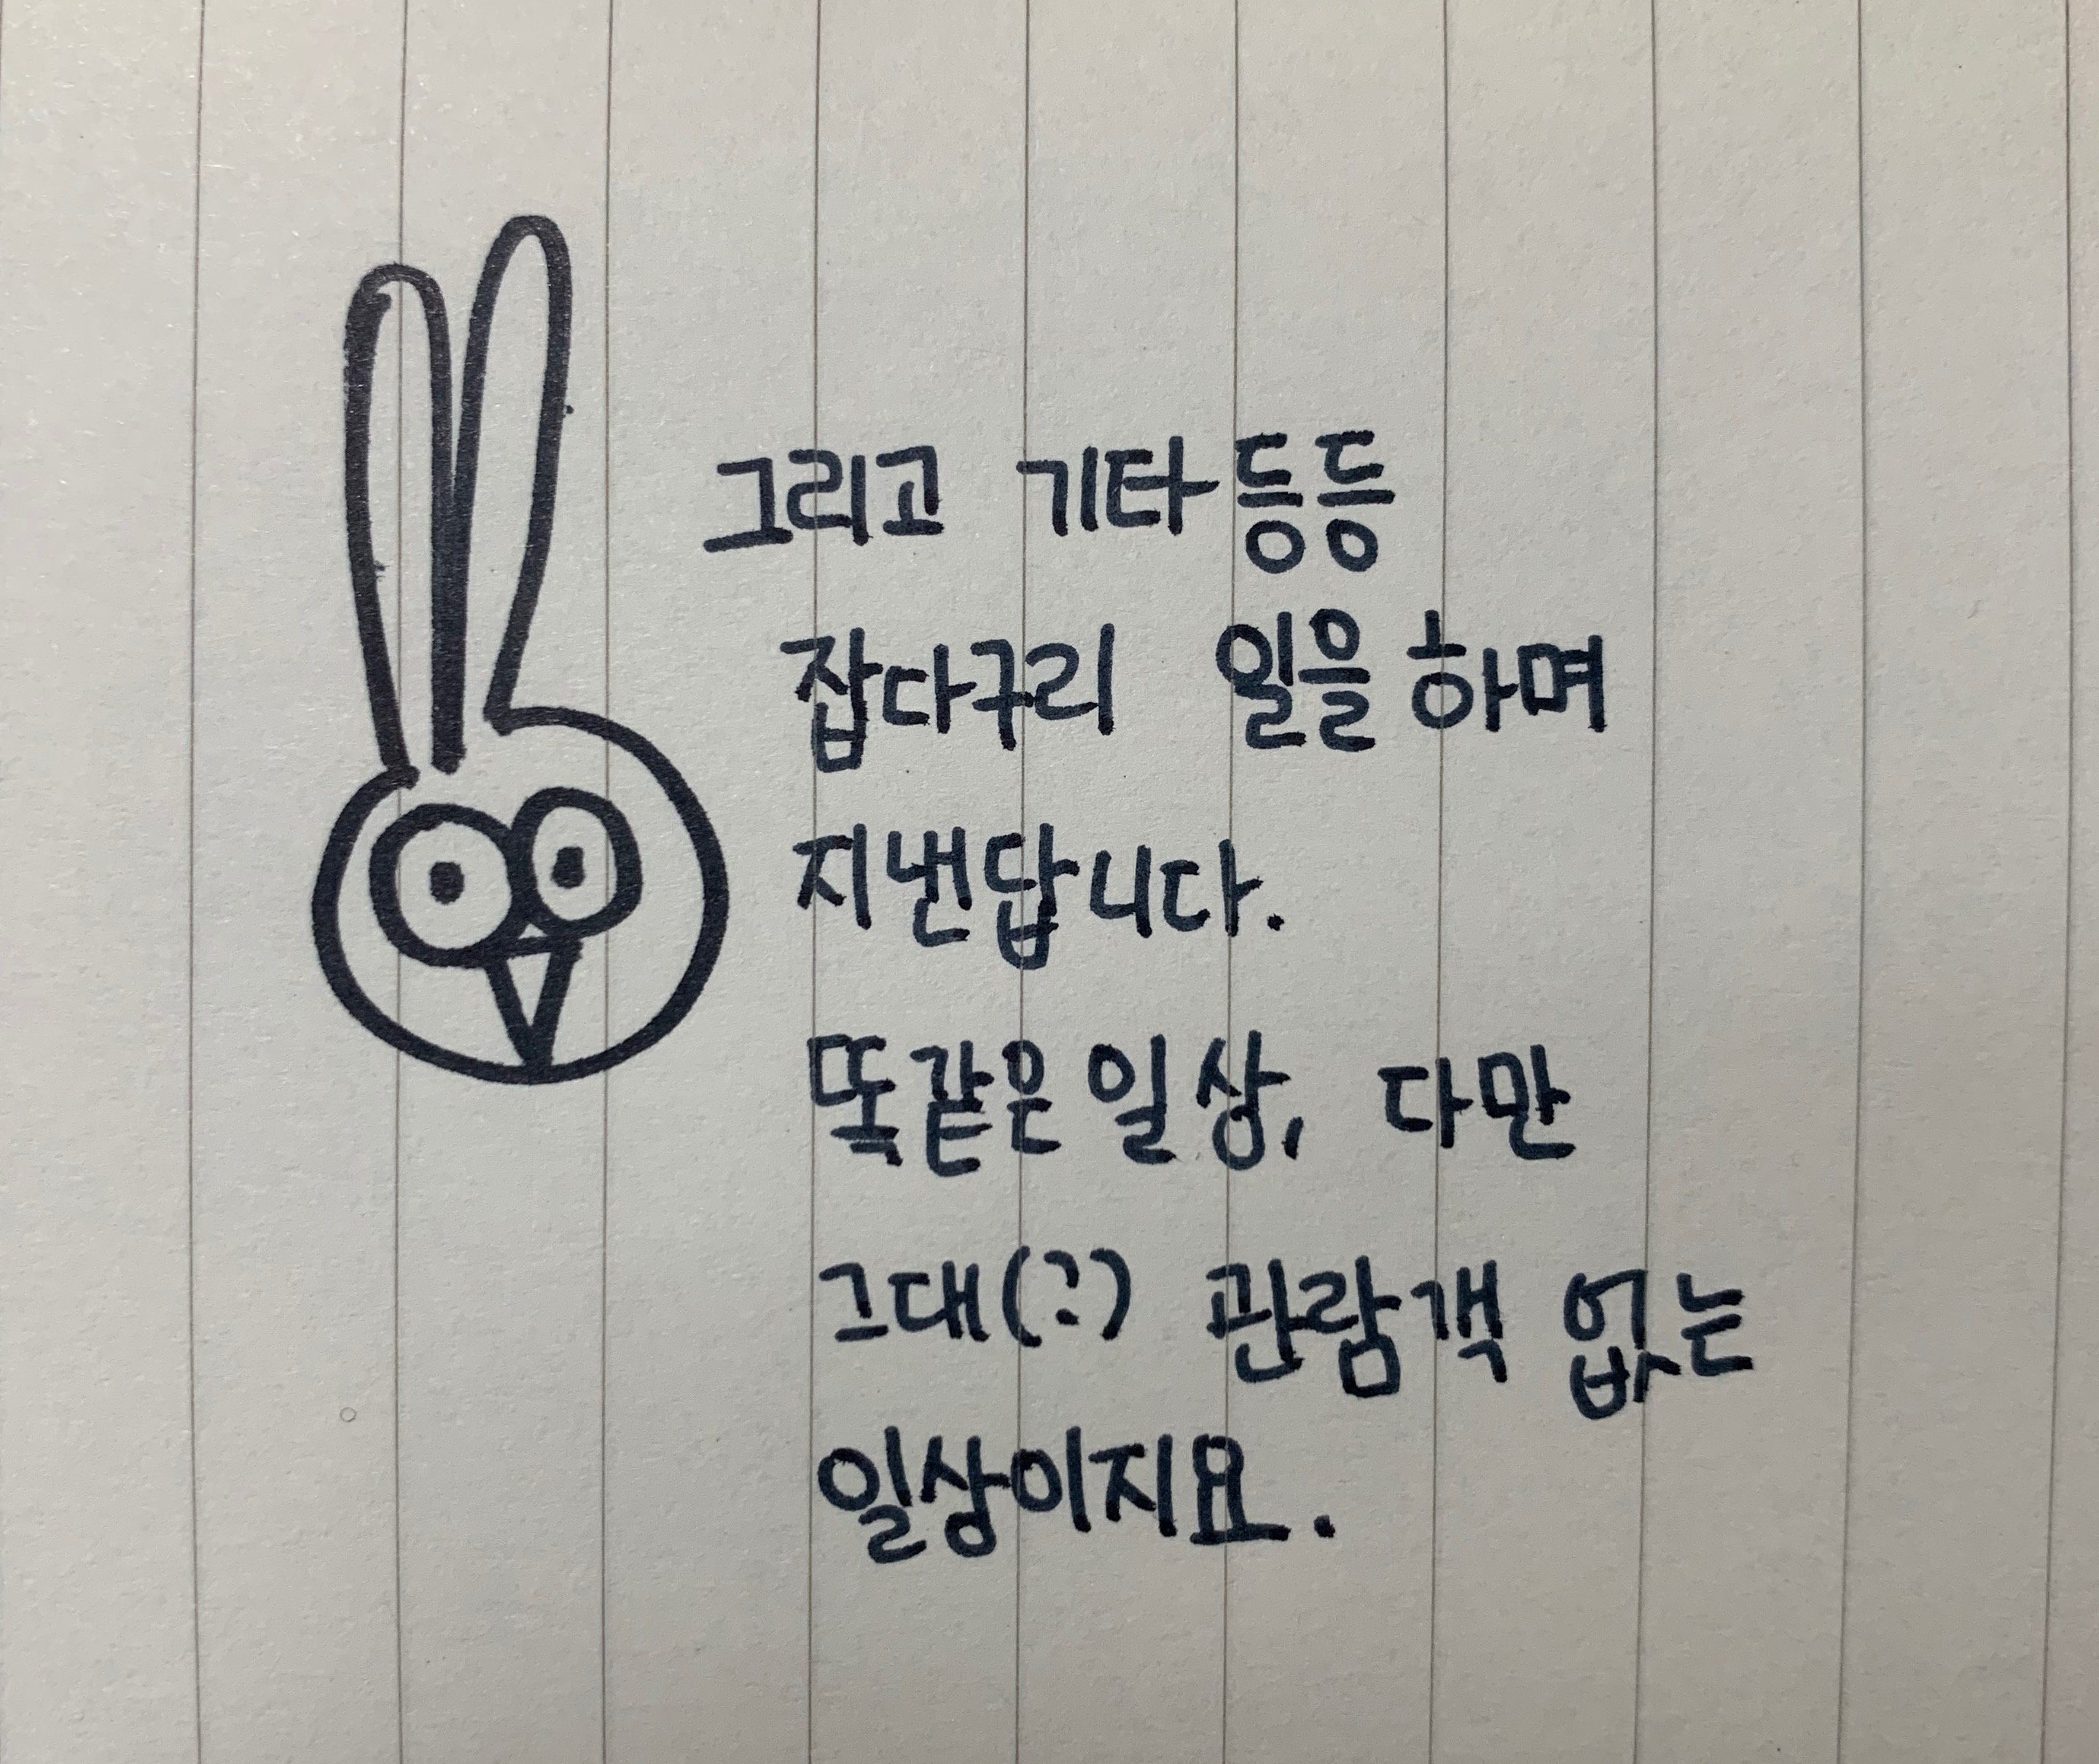 그리고 기타등등
잡다구리 일을 하며
지낸답니다.
똑같은 일상, 다만
그대(?) 관람객 없는
일상이지요.